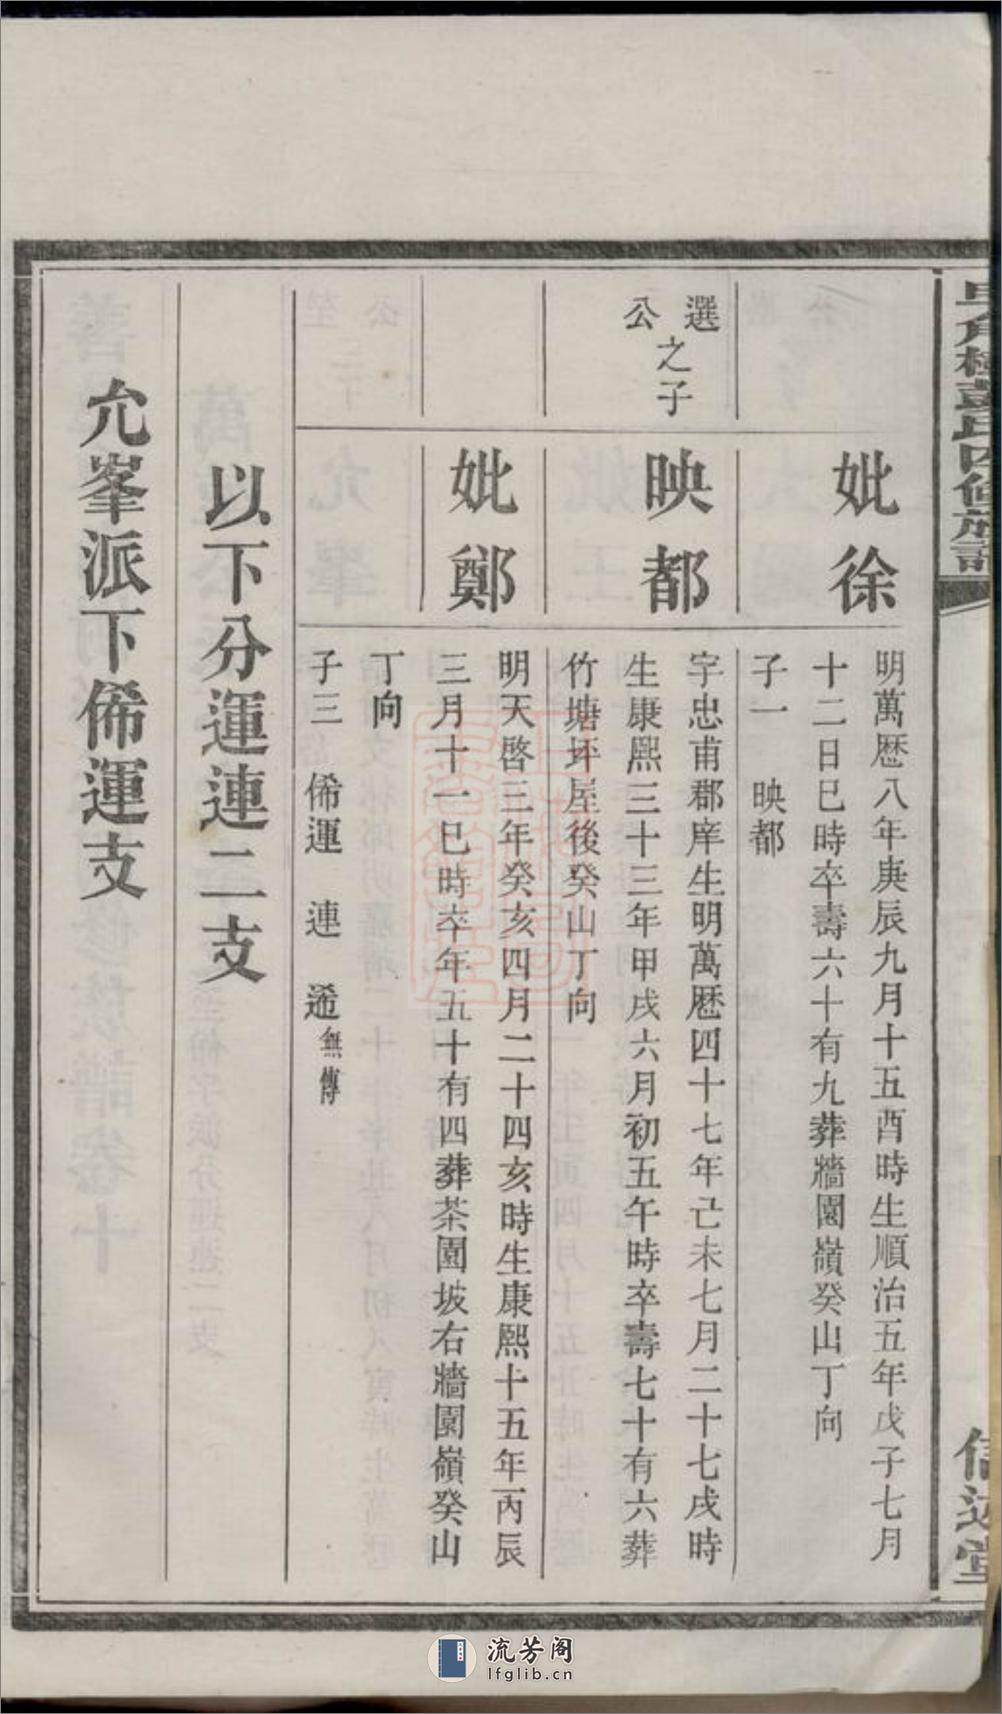 彭氏四修族譜
信述堂
妣徐
明萬歷八年庚辰九月十五酉時生順治五年戊子七月
十二日巳時卒壽六十有九葬牆園嶺癸山丁向
子一　映都
選公之子
映都
字忠甫郡庠生明萬歷四十七年己未七月二十七戌時
生康熙三十三年甲戌六月初五午時卒壽七十有六葬
竹塘坪屋後癸山丁向
妣鄭
明天啓三年癸亥四月二十四亥時生康熙十五年丙辰
三月十一巳時卒年五十有四葬茶園坡右牆園嶺癸山
丁向
子三　俙運　連　逓無傳
以下分運連二支
允峯派下俙運支
流芳阁
lfglib.cn